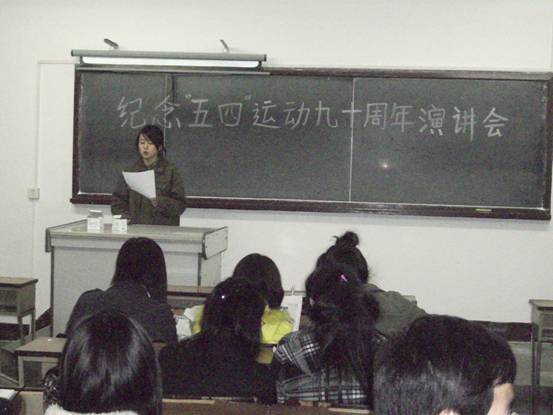 纪念"五四"运动九十周年演讲会